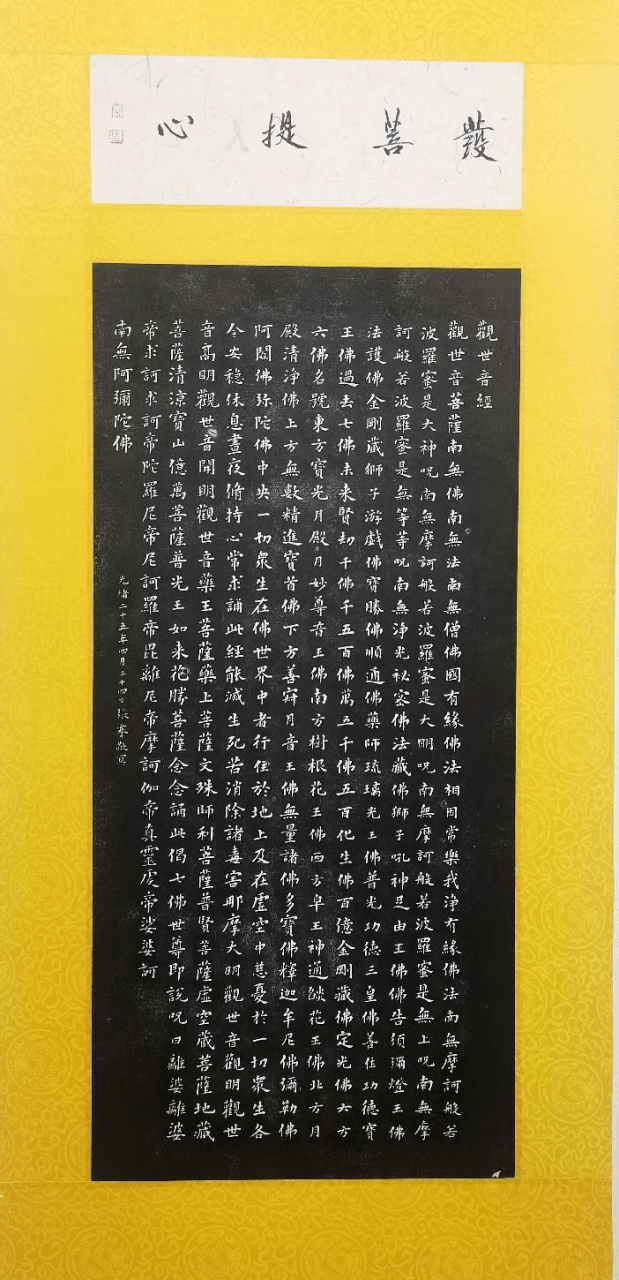 發菩提心
觀世音經
觀世音菩薩南無佛南無法南無僧佛國有緣佛法相因常樂我淨有緣佛法南無摩訶般若
波羅蜜是大神呪南無摩訶般若波羅蜜是大明呪南無摩訶般若波羅蜜是無上呪南無摩
訶般若波羅蜜是無等等呪南無淨光祕密佛法藏佛獅子吼神足由王佛佛告須彌燈王佛
法護佛金剛藏獅子游戲佛寶勝佛順通佛藥師琉璃光王佛普光功德三皇佛善住功德寶
王佛過去七佛未来賢劫千佛千五百佛萬五千佛五百花生佛百億金剛藏佛定光佛六方
六佛名號東方寶光月殿月妙尊音王佛南方樹根花王佛西方皁王神通燄花王佛北方月
殿清淨佛上方無數精進寶首佛下方善寂月音王佛無量諸佛多寶佛釋迦牟尼佛彌勒佛
阿閦佛弥陀佛中央一切衆生在佛世界中者行住於地上及在虛空中慈憂於一切衆生各
令安穏休息晝夜脩持心常求誦此經能滅生死苦消除諸毒害那摩大明觀世音觀明觀世
音高明觀世音開明觀世音藥王菩薩藥上菩薩文殊師利菩薩普賢菩薩虛空藏菩薩地藏
菩薩清涼寶山億萬菩薩普光王如来花勝菩薩念念誦此偈七佛世尊即說呪曰離婆離婆
帝求訶求訶帝陀羅尼帝尼訶羅帝毘離尼帝摩訶伽帝真靈虔帝娑婆訶
南無阿彌陀佛
光緒二十五年四月二十四日張謇敬寫